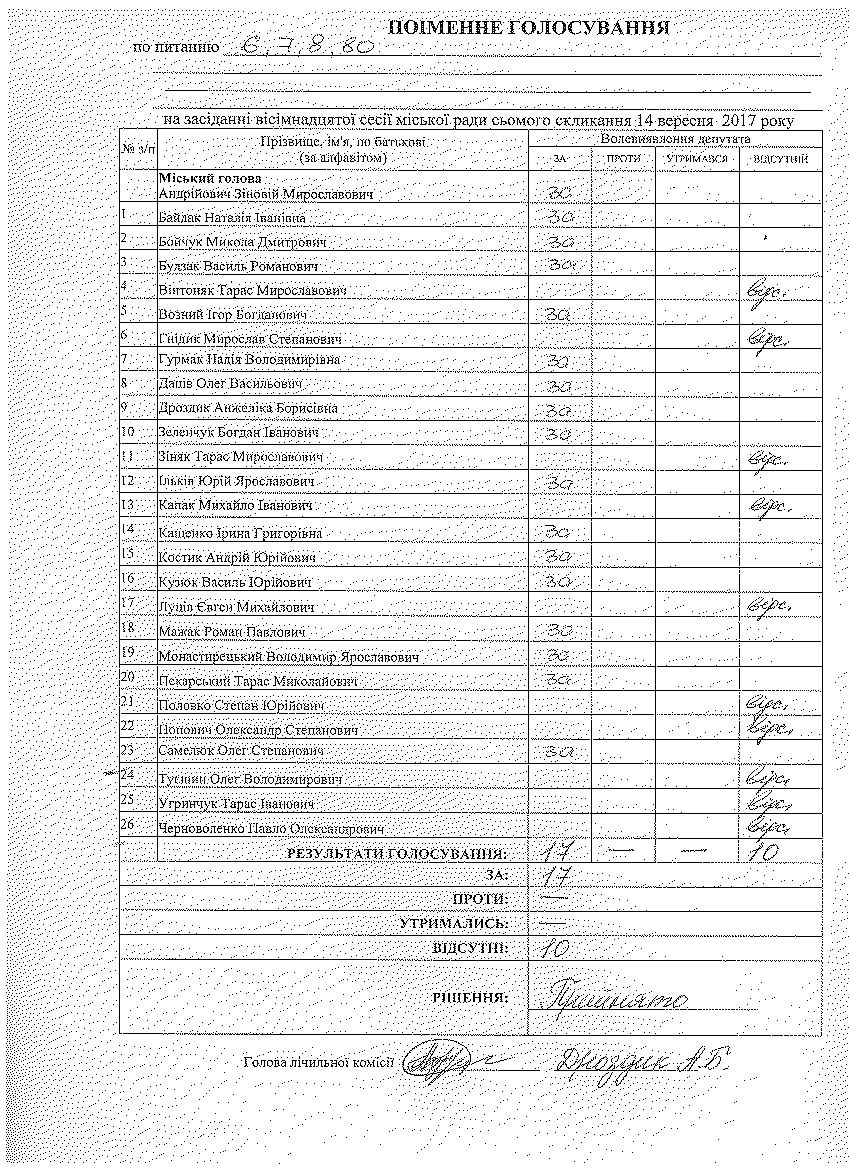 ПОІМЕННЕ ГОЛОСУВАННЯ
по питанню 6, 7, 8, 80
на засіданні вісімнадцятої сесії міської ради сьомого скликання 14 вересня 2017 року
№ з/п Прізвище, ім'я, по батькові (за алфавітом) Волевиявлення депутата
ЗА ПРОТИ УТРИМАВСЯ ВІДСУТНІЙ
Міський голова
Андрійович Зіновій Мирославович за
1 Байдак Наталія Іванівна за
2 Бойчук Микола Дмитрович за
3 Будзак Василь Романович за
4 Вінтоняк Тарас Мирославович відс.
5 Возний Ігор Богданович за
6 Гнідик Мирослав Степанович відс.
7 Гурмак Надія Володимирівна за
8 Даців Олег Васильович за
9 Дроздик Анжеліка Борисівна за
10 Зеленчук Богдан Іванович за
11 Зіняк Тарас Мирославович відс.
12 Ільків Юрій Ярославович за
13 Капак Михайло Іванович відс.
14 Кащенко Ірина Григорівна за
15 Костик Андрій Юрійович за
16 Кузюк Василь Юрійович за
17 Луців Євген Михайлович відс.
18 Мажак Роман Павлович за
19 Монастирецький Володимир Ярославович за
20 Пекарський Тарас Миколайович за
21 Половко Степан Юрійович відс.
22 Попович Олександр Степанович відс.
23 Самелюк Олег Степанович за
24 Олег Володимирович відс.
25 Угринчук Тарас Іванович відс.
26 Черноволенко Павло Олександрович відс.
РЕЗУЛЬТАТИ ГОЛОСУВАННЯ: 17 — — 10
ЗА: 17
ПРОТИ: —
УТРИМАЛИСЬ: —
ВІДСУТНІ: 10
РІШЕННЯ: Прийнято
Голова лічильної комісії Дроздик А.Б.